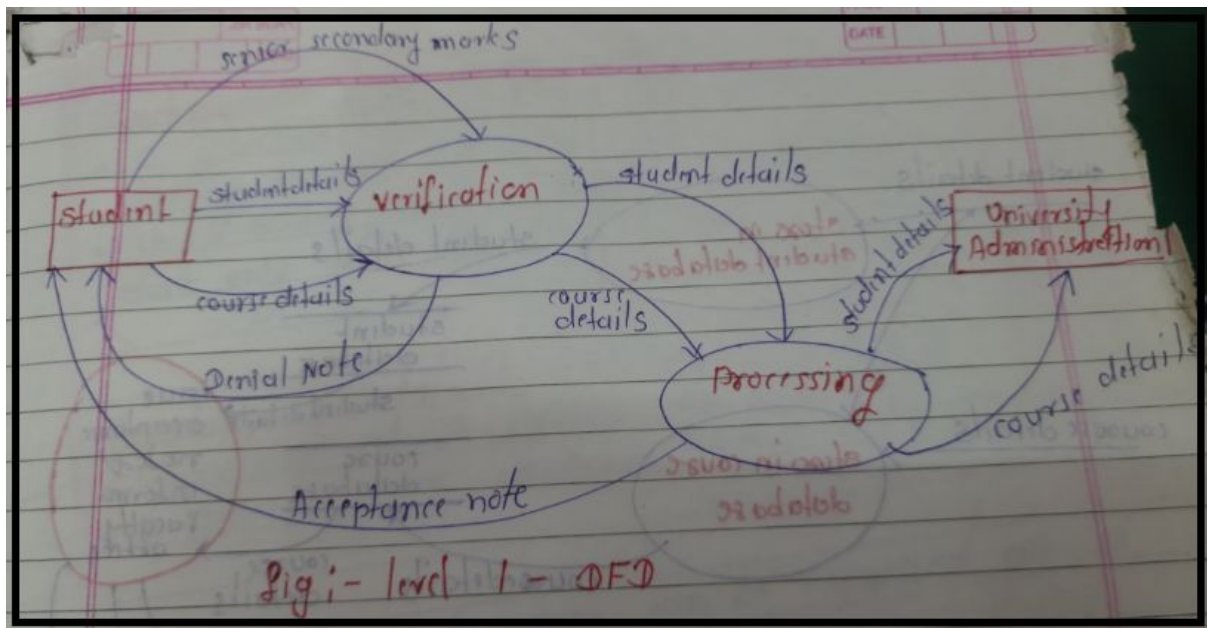 DATE
senior secondary marks
student
studentdetails
verification
student details
University
Administration
course details
course
details
student details
Denial Note
processing
course details
Acceptance note
fig:- level 1 - DFD